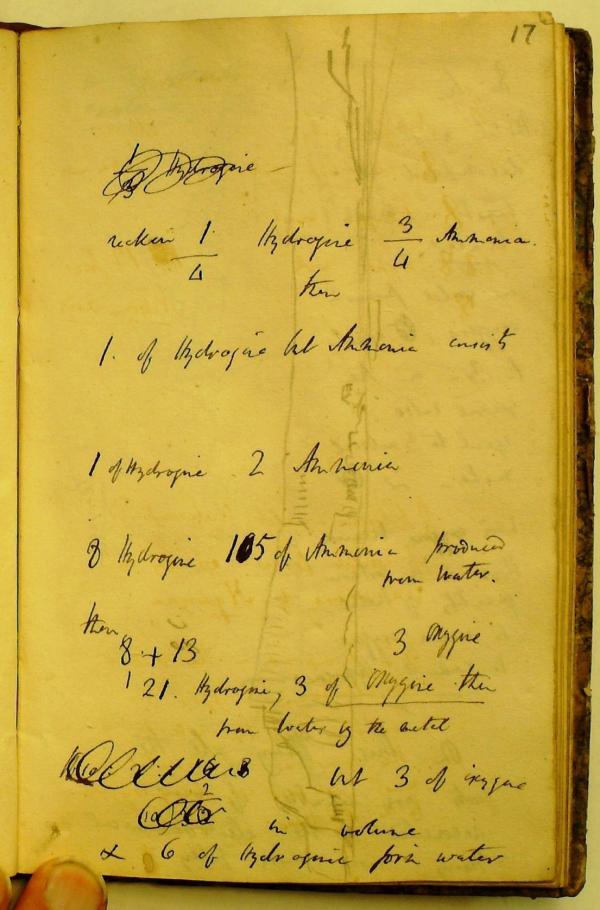 17
Hydrogine
reckon 1/4 Hydrogine 3/4 Ammonia.
then
1. of Hydrogine but Ammonia consists
1 of Hydrogine 2 Ammonia
8 Hydrogine 105 of Ammonia produced
from water.
then
8 + 13 3 Oxygine
21. Hydrogine, 3 of Oxygine then
from water by the metal
but 3 of oxygine
in volume
& 6 of Hydrogine form water